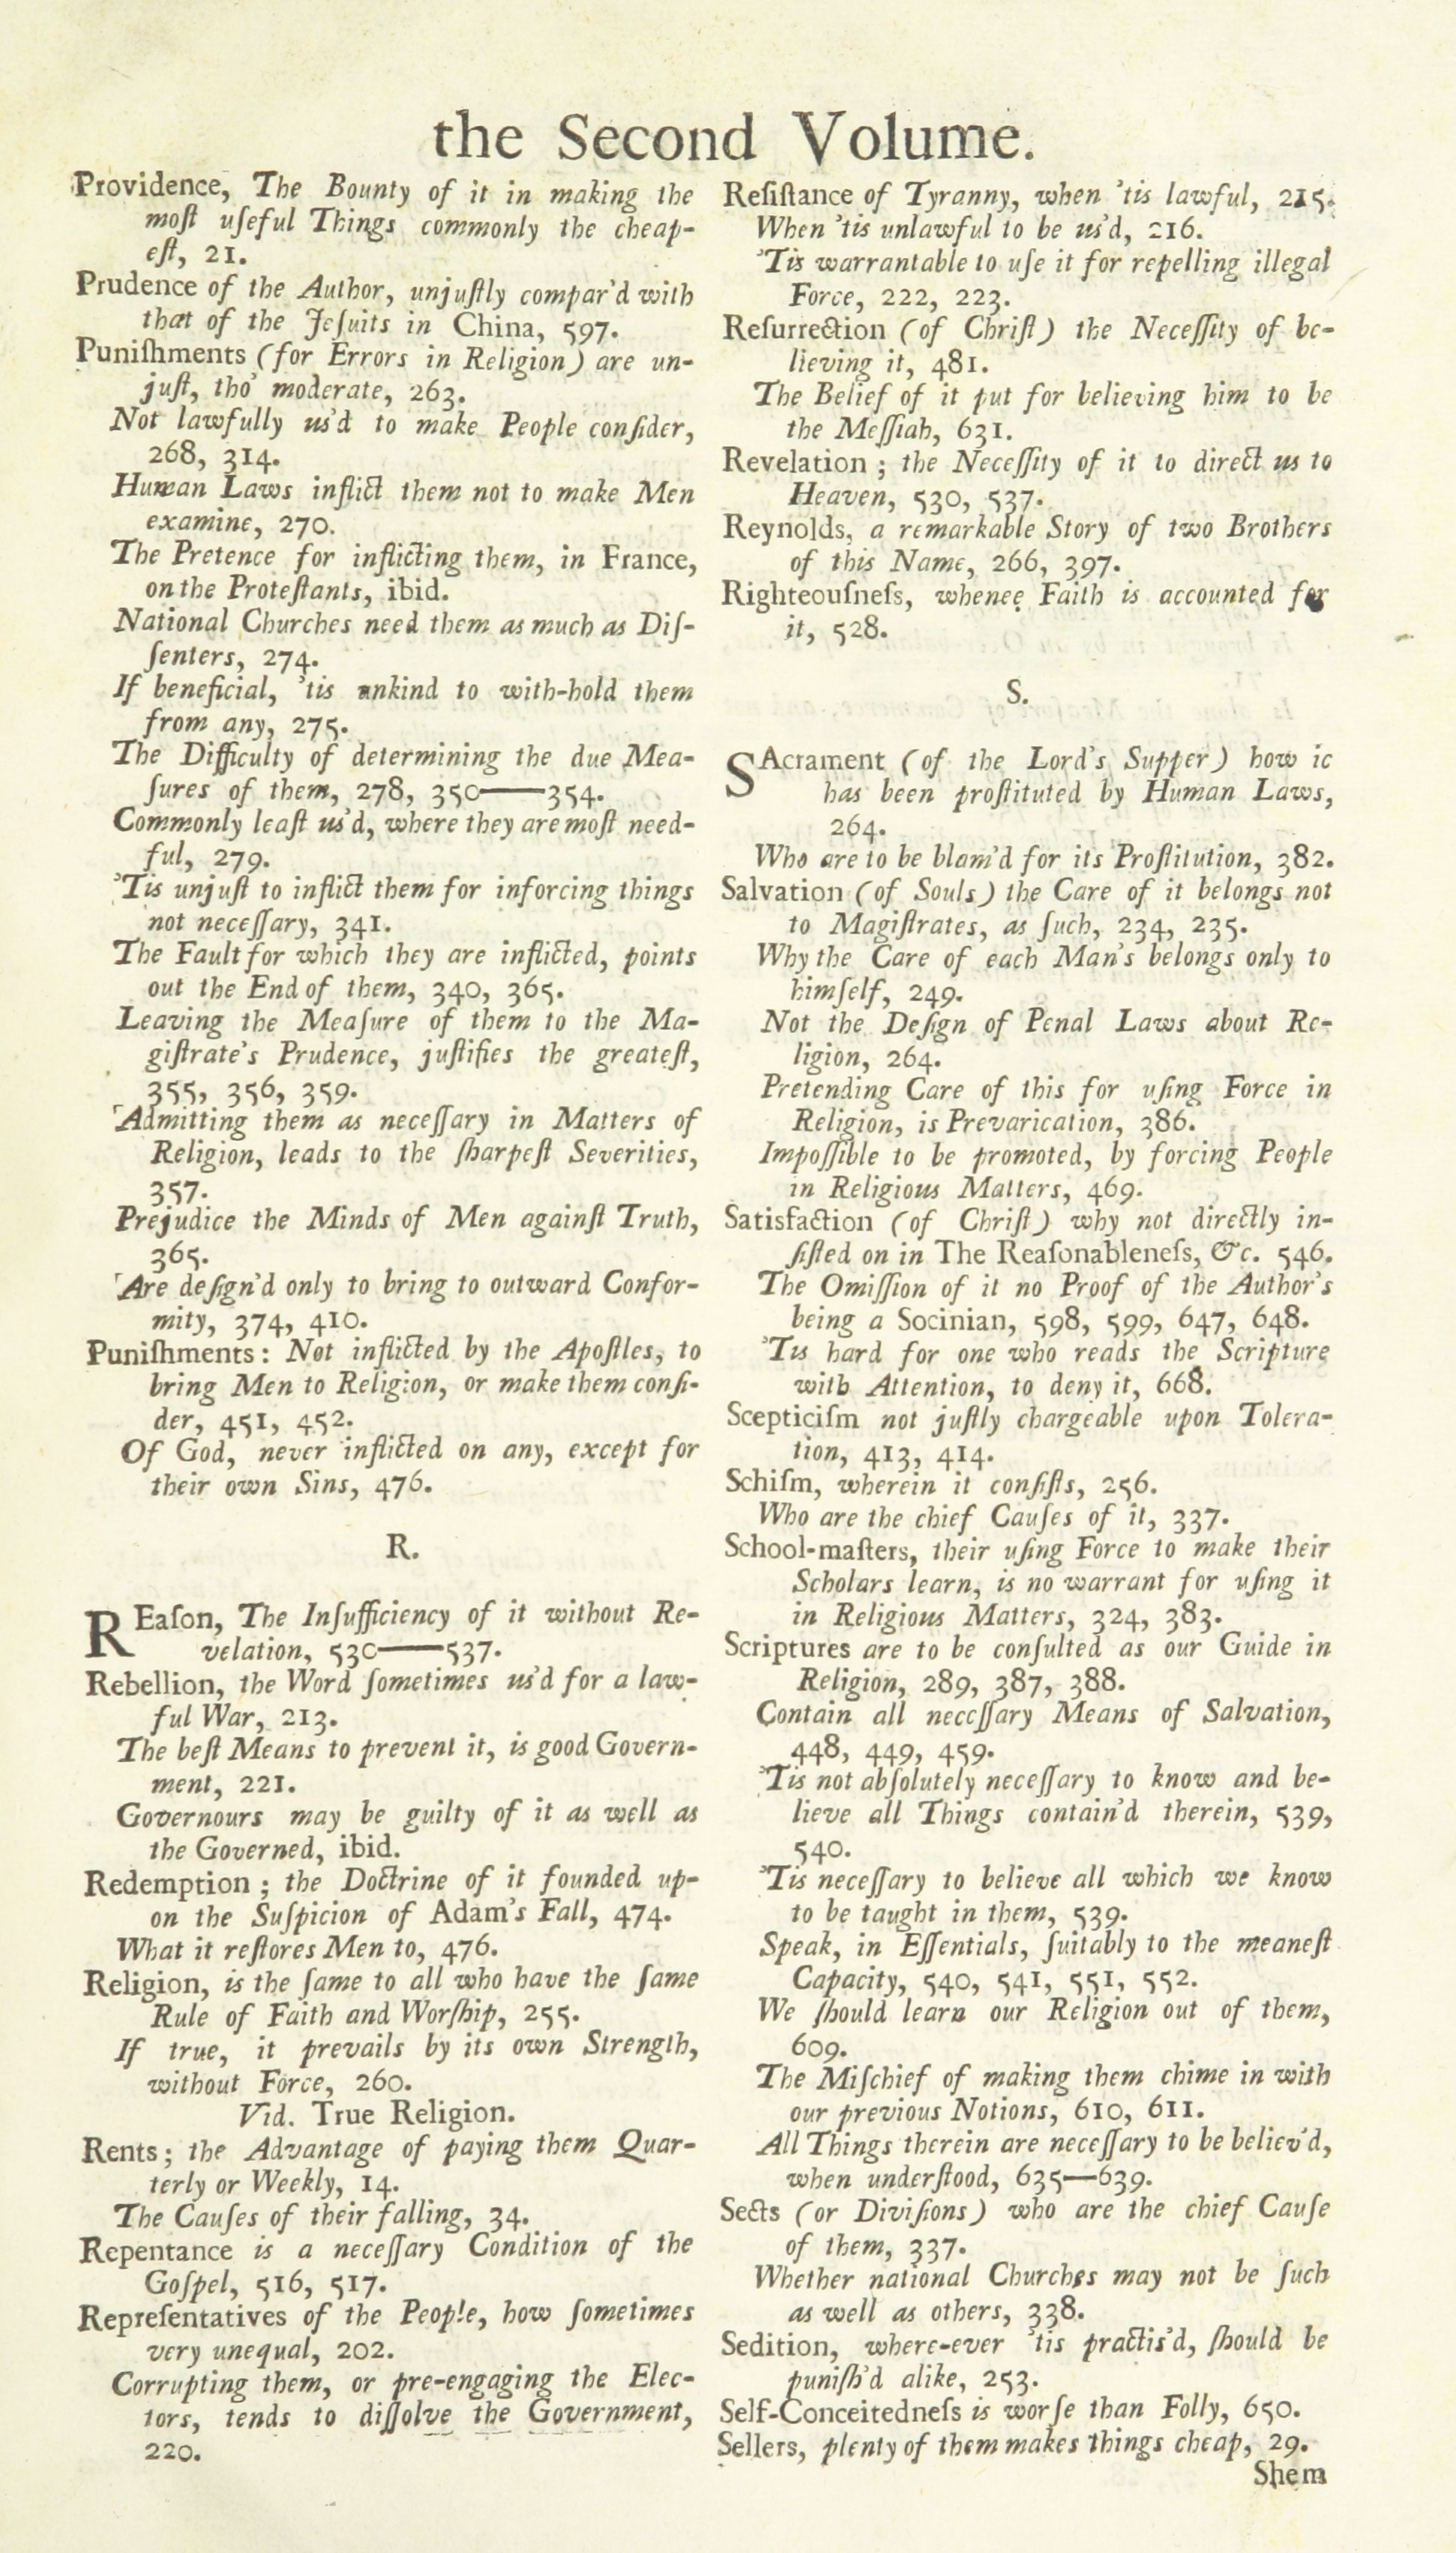 the Second Volume.
Providence, The Bounty of it in making the
moſt uſeful Things commonly the cheap-
eſt, 21.
Prudence of the Author, unjuſtly compar'd with
that of the Jeſuits in China, 597.
Puniſhments (for Errors in Religion) are un-
juſt, tho' moderate, 263.
Not lawfully us'd to make People conſider,
268, 314.
Human Laws inflict them not to make Men
examine, 270.
The Pretence for inflicting them, in France,
on the Proteſtants, ibid.
National Churches need them as much as Diſ-
ſenters, 274.
If beneficial, 'tis unkind to with-hold them
from any, 275.
The Difficulty of determining the due Mea-
ſures of them, 278, 350——354.
Commonly leaſt us'd, where they are moſt need-
ful, 279.
'Tis unjuſt to inflict them for inforcing things
not neceſſary, 341.
The Fault for which they are inflicted, points
out the End of them, 340, 365.
Leaving the Meaſure of them to the Ma-
giſtrate's Prudence, juſtifies the greateſt,
355, 356, 359.
Admitting them as neceſſary in Matters of
Religion, leads to the ſharpeſt Severities,
357.
Prejudice the Minds of Men againſt Truth,
365.
Are deſign'd only to bring to outward Confor-
mity, 374, 410.
Puniſhments: Not inflicted by the Apoſtles, to
bring Men to Religion, or make them conſi-
der, 451, 452.
Of God, never inflicted on any, except for
their own Sins, 476.
R.
REaſon, The Inſufficiency of it without Re-
velation, 530——537.
Rebellion, the Word ſometimes us'd for a law-
ful War, 213.
The beſt Means to prevent it, is good Govern-
ment, 221.
Governours may be guilty of it as well as
the Governed, ibid.
Redemption; the Doctrine of it founded up-
on the Suſpicion of Adam's Fall, 474.
What it reſtores Men to, 476.
Religion, is the ſame to all who have the ſame
Rule of Faith and Worſhip, 255.
If true, it prevails by its own Strength,
without Force, 260.
Vid. True Religion.
Rents; the Advantage of paying them Quar-
terly or Weekly, 14.
The Cauſes of their falling, 34.
Repentance is a neceſſary Condition of the
Goſpel, 516, 517.
Repreſentatives of the People, how ſometimes
very unequal, 202.
Corrupting them, or pre-engaging the Elec-
tors, tends to diſſolve the Government,
220.
Reſiſtance of Tyranny, when 'tis lawful, 215.
When 'tis unlawful to be us'd, 216.
'Tis warrantable to uſe it for repelling illegal
Force, 222, 223.
Reſurrection (of Chriſt) the Neceſſity of be-
lieving it, 481.
The Belief of it put for believing him to be
the Meſſiah, 631.
Revelation; the Neceſſity of it to direct us to
Heaven, 530, 537.
Reynolds, a remarkable Story of two Brothers
of this Name, 266, 397.
Righteouſneſs, whence Faith is accounted for
it, 528.
S.
SAcrament (of the Lord's Supper) how it
has been proſtituted by Human Laws,
264.
Who are to be blam'd for its Proſtitution, 382.
Salvation (of Souls) the Care of it belongs not
to Magiſtrates, as ſuch, 234, 235.
Why the Care of each Man's belongs only to
himſelf, 249.
Not the Deſign of Penal Laws about Re-
ligion, 264.
Pretending Care of this for uſing Force in
Religion, is Prevarication, 386.
Impoſſible to be promoted, by forcing People
in Religious Matters, 469.
Satisfaction (of Chriſt) why not directly in-
ſiſted on in The Reaſonableneſs, &c. 546.
The Omiſſion of it no Proof of the Author's
being a Socinian, 598, 599, 647, 648.
'Tis hard for one who reads the Scripture
with Attention, to deny it, 668.
Scepticiſm not juſtly chargeable upon Tolera-
tion, 413, 414.
Schiſm, wherein it conſiſts, 256.
Who are the chief Cauſes of it, 337.
School-maſters, their uſing Force to make their
Scholars learn, is no warrant for uſing it
in Religious Matters, 324, 383.
Scriptures are to be conſulted as our Guide in
Religion, 289, 387, 388.
Contain all neceſſary Means of Salvation,
448, 449, 459.
'Tis not abſolutely neceſſary to know and be-
lieve all Things contain'd therein, 539,
540.
'Tis neceſſary to believe all which we know
to be taught in them, 539.
Speak, in Eſſentials, ſuitably to the meaneſt
Capacity, 540, 541, 551, 552.
We ſhould learn our Religion out of them,
609.
The Miſchief of making them chime in with
our previous Notions, 610, 611.
All Things therein are neceſſary to be believ'd,
when underſtood, 635—639.
Sects (or Diviſions) who are the chief Cauſe
of them, 337.
Whether national Churches may not be ſuch
as well as others, 338.
Sedition, where-ever 'tis practis'd, ſhould be
puniſh'd alike, 253.
Self-Conceitedneſs is worſe than Folly, 650.
Sellers, plenty of them makes things cheap, 29.
Shem